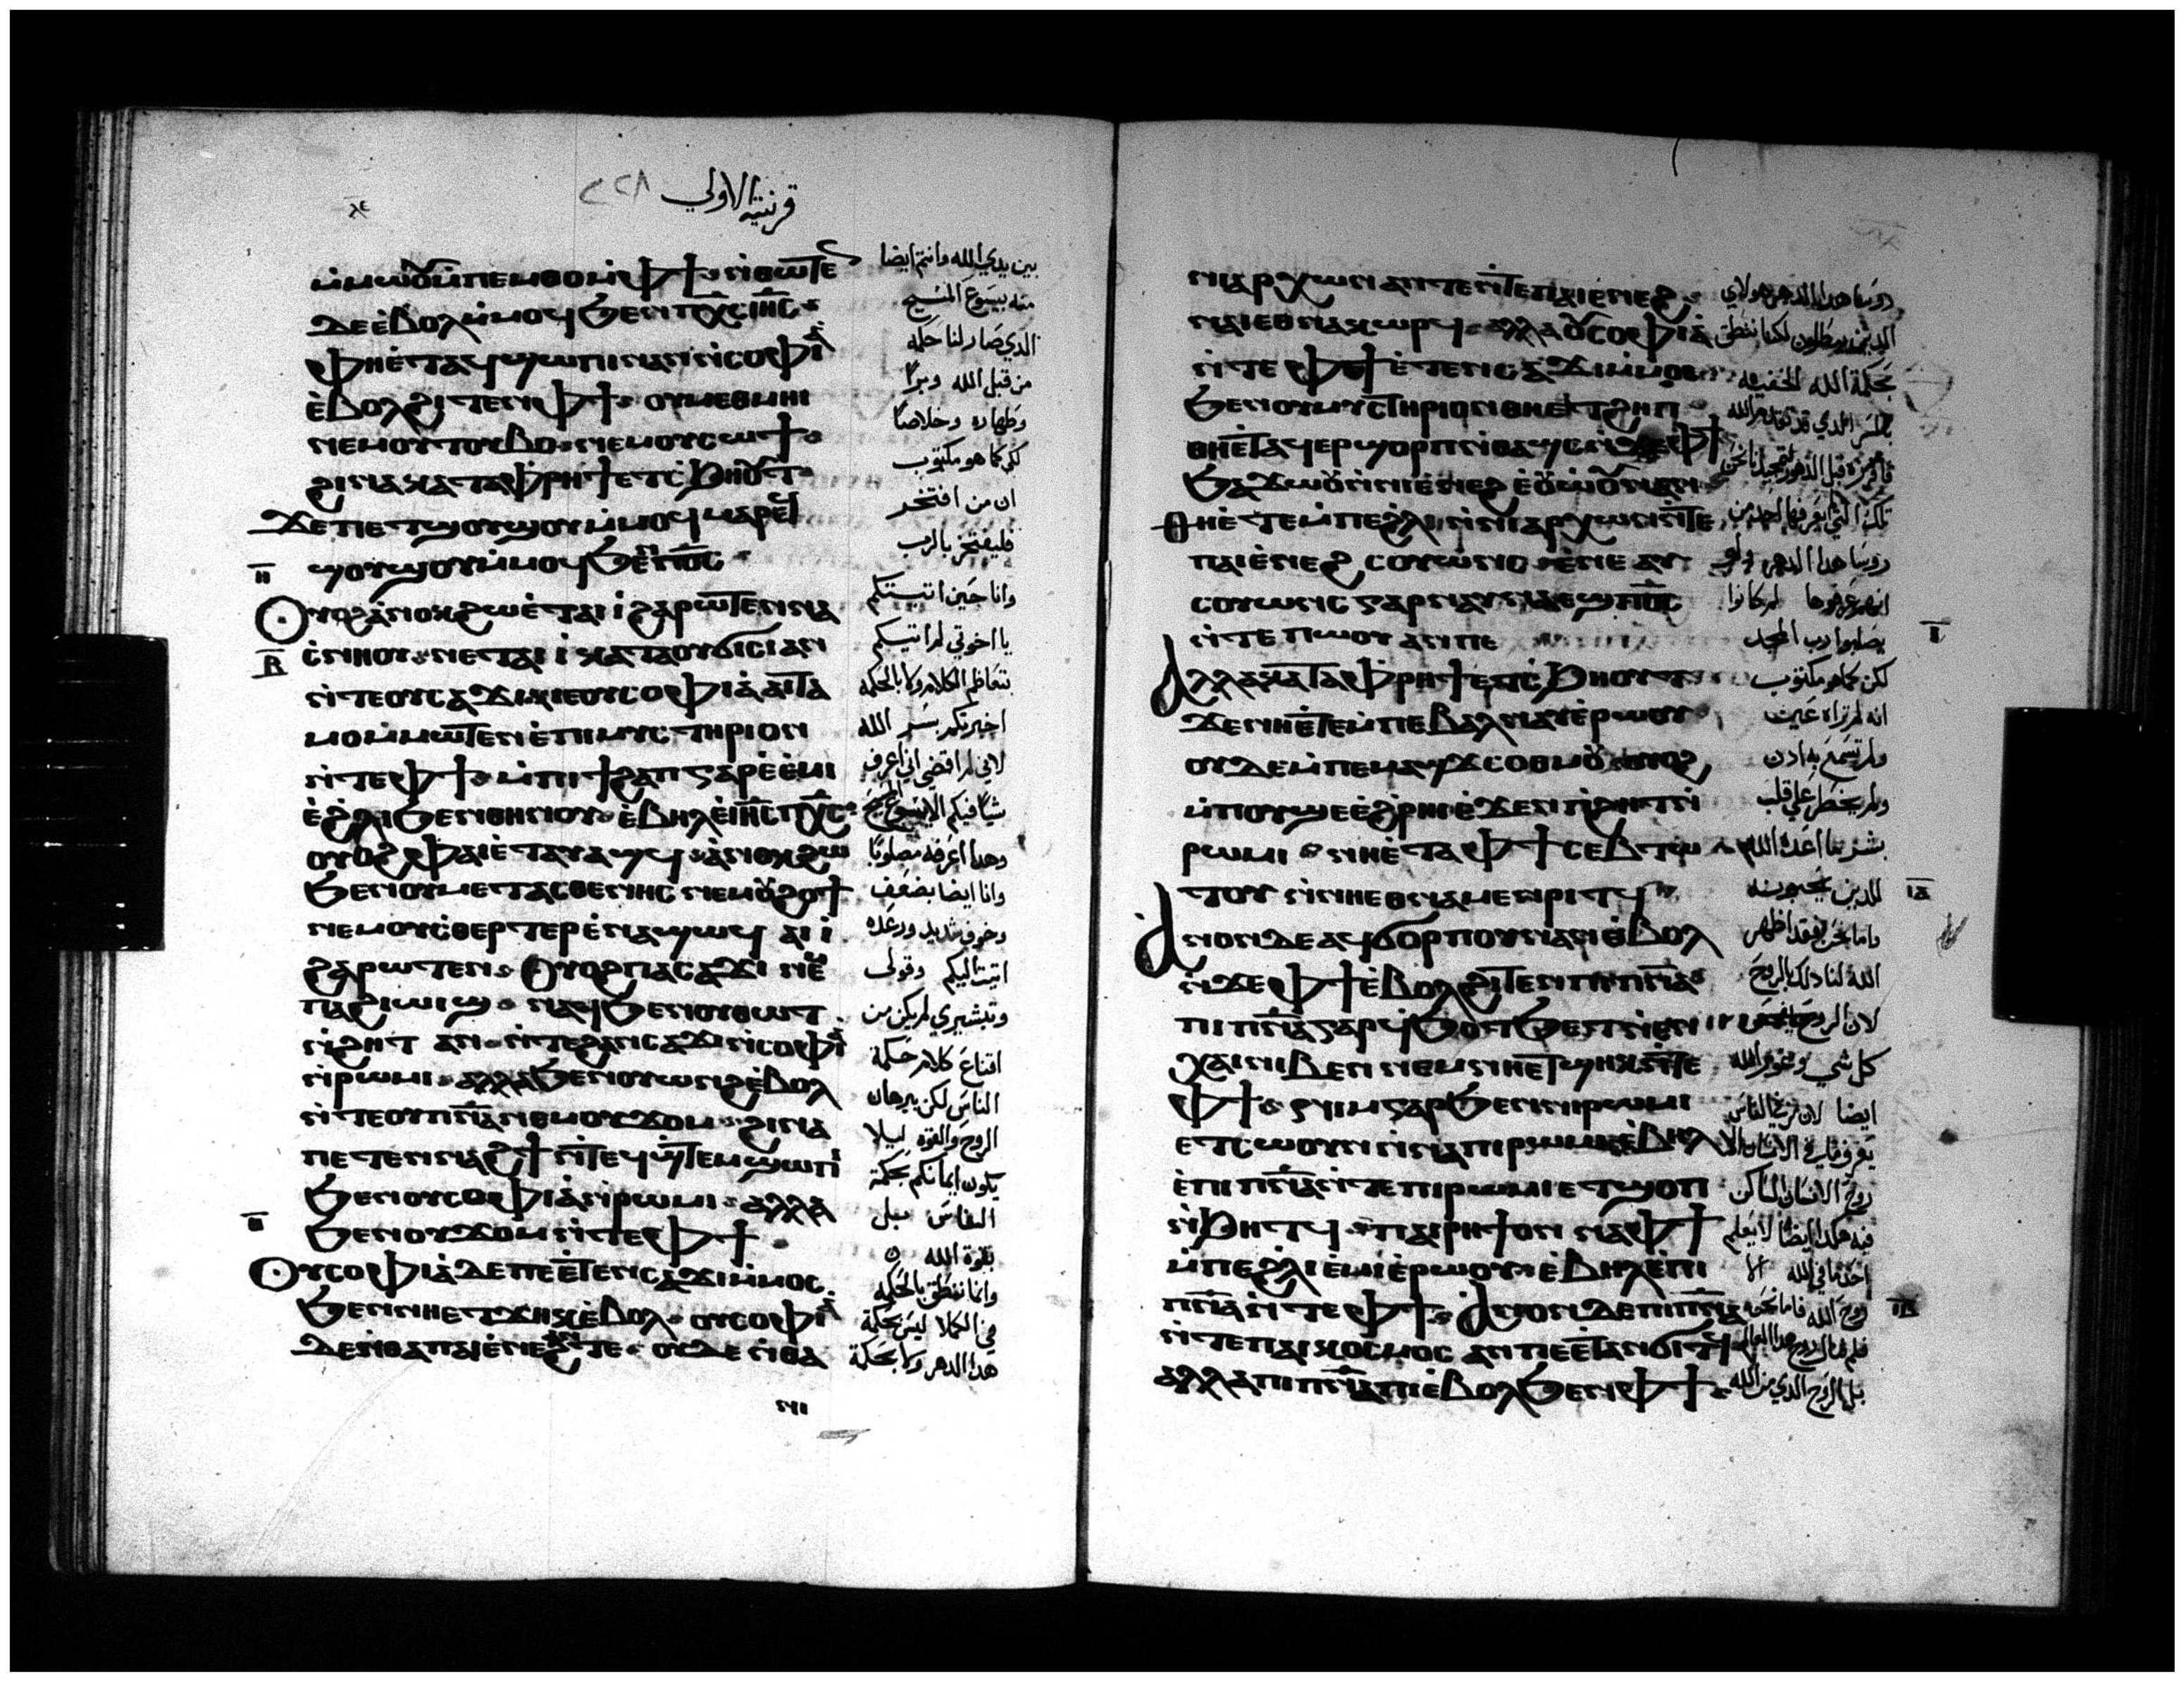 قرنتيه الاولي
ⲙ̀ⲙⲱⲟⲩ ⲙ̀ⲡⲉⲙⲑⲟ ⲙ̀ⲫϯ ⲛ̀ⲑⲱⲧⲉⲛ
ⲇⲉ ⲉ̀ⲃⲟⲗ ⲙ̀ⲙⲟϥ ϧⲉⲛ ⲡⲭ̅ⲥ̅ ⲓⲏ̅ⲥ̅
ⲫⲏⲉ̀ⲧⲁϥϣⲱⲡⲓ ⲛⲁⲛ ⲛ̀ⲥⲟⲫⲓⲁ̀
ⲉ̀ⲃⲟⲗ ϩⲓⲧⲉⲛ ⲫϯ ⲟⲩⲙⲉⲑⲙⲏⲓ
ⲛⲉⲙ ⲟⲩⲧⲟⲩⲃⲟ ⲛⲉⲙ ⲟⲩⲥⲱϯ
ϩⲓⲛⲁ ⲕⲁⲧⲁ ⲫⲣⲏϯ ⲉⲧⲥ̀ϧⲏⲟⲩⲧ
ϫⲉ ⲡⲉⲧϣⲟⲩϣⲟⲩ ⲙ̀ⲙⲟϥ ⲙⲁⲣⲉϥ
ϣⲟⲩϣⲟⲩ ⲙ̀ⲙⲟϥ ϧⲉⲛ ⲡⲟ̅ⲥ̅
ⲟⲩⲟϩ ⲁ̀ⲛⲟⲕ ϩⲱ ⲉ̀ⲧⲁⲓⲓ̀ ϩⲁⲣⲱⲧⲉⲛ ⲛⲁ
ⲥ̀ⲛⲏⲟⲩ ⲛⲉⲧⲁⲓⲓ̀ ⲕⲁⲧⲁ ⲟⲩϭⲓⲥⲓ ⲁⲛ
ⲛ̀ⲧⲉ ⲟⲩⲥⲁϫⲓ ⲓⲉ ⲟⲩⲥⲟⲫⲓⲁ̀ ⲁⲓⲧⲁ
ⲙⲟ ⲙ̀ⲙⲱⲧⲉⲛ ⲉ̀ⲡⲓⲙⲩⲥⲧⲏⲣⲓⲟⲛ
ⲛ̀ⲧⲉ ⲫϯ ⲙ̀ⲡⲓϯϩⲁⲡ ⲅⲁⲣ ⲉ̀ⲉ̀ⲙⲓ
ⲉ̀ϩ̀ⲗⲓ ϧⲉⲛ ⲑⲏⲛⲟⲩ ⲉ̀ⲃⲏⲗ ⲉ̀ⲓⲏ̅ⲥ̅ ⲡⲭ̅ⲥ̅
ⲟⲩⲟϩ ⲫⲁⲓ ⲉ̀ⲧⲁⲩⲁϣϥ ⲁ̀ⲛⲟⲕ ϩⲱ
ϧⲉⲛ ⲟⲩⲙⲉⲧⲁⲥⲑⲉⲛⲏⲥ ⲛⲉⲙ ⲟⲩϩⲟϯ
ⲛⲉⲙ ⲟⲩⲥ̀ⲑⲉⲣⲧⲉⲣ ⲉ̀ⲛⲁϣⲱϥ ⲁⲓⲓ̀
ϩⲁⲣⲱⲧⲉⲛ ⲟⲩⲟϩ ⲡⲁⲥⲁϫⲓ ⲛⲉⲙ
ⲡⲁϩⲓⲱⲓϣ ⲛⲁϥϧⲉⲛ ⲟⲩⲑⲱⲧ
ⲛ̀ϩⲏⲧ ⲁⲛ ⲛ̀ⲧⲉ ϩⲁⲛⲥⲁϫⲓ ⲛ̀ⲥⲟⲫⲓⲁ̀
ⲛ̀ⲣⲱⲙⲓ ⲁⲗⲗⲁ ϧⲉⲛ ⲟⲩⲱⲛϩ ⲉ̀ⲃⲟⲗ
ⲛ̀ⲧⲉ ⲟⲩⲡ̅ⲛ̅ⲁ̅ ⲛⲉⲙ ⲟⲩϫⲟⲙ ϩⲓⲛⲁ
ⲡⲉⲧⲉⲛⲛⲁϩϯ ⲛ̀ⲧⲉϥϣ̀ⲧⲉⲙϣⲱⲡⲓ
ϧⲉⲛ ⲟⲩⲥⲟⲫⲓⲁ̀ ⲛ̀ⲣⲱⲙⲓ ⲁⲗⲗⲁ
ϧⲉⲛ ⲟⲩϫⲟⲙ ⲛ̀ⲧⲉ ⲫϯ
ⲟⲩⲥⲟⲫⲓⲁ̀ ⲇⲉ ⲡⲉⲉ̀ⲧⲉⲛⲥⲁϫⲓ ⲙ̀ⲙⲟⲥ
ϧⲉⲛ ⲛⲏⲉⲧϫⲏⲕ ⲉ̀ⲃⲟⲗ ⲟⲩⲥⲟⲫⲓⲁ̀
ⲇⲉ ⲛ̀ⲑⲁ ⲡⲁⲓⲉ̀ⲛⲉϩ ⲁⲛ ⲧⲉ ⲟⲩⲇⲉ ⲛ̀ⲑⲁ
ⲛⲓ
بين يدي الله وانتم ايضا
منه بيسوع المسيح
الدي صار لنا حكمه
من قبل الله وبرًا
وطهاره وخلاصًا
لكي كما هو مكتوب
ان من افتخر
فليفتخر بالرب
وانا حين اتيتكم
يا اخوتي لم اتيكم
بتعاظم الكلام ولا بالحكمه
اخبرتكم بسر الله
لاني لم اقضي اني اعرف
شيًا فيكم الا يسوع المسيح
وهدا اعرفه مصلوبًا
وانا ايضا بضعف
وخوف شديد ورعده
اتيت اليكم وقولي
وتبشيري لم يكن من
اقناع كلام حكمة
الناس لكن ببرهان
الروح والقوه ليلا
يكون ايمانكم بحكمة
الناس بل
بقوة الله
وانما ننطق بالحكمه
في الكملا ليس بحكمة
هدا الدهر ولا بحكمة
ⲛⲓⲁⲣⲭⲱⲛ ⲁⲛ ⲧⲉ ⲛ̀ⲧⲉ ⲡⲁⲓⲉ̀ⲛⲉϩ
ⲛⲁⲓ ⲉⲑⲛⲁⲕⲱⲣϥ ⲁⲗⲗⲁ ⲟⲩⲥⲟⲫⲓⲁ̀
ⲛ̀ⲧⲉ ⲫϯ ⲉ̀ⲧⲉⲛⲥⲁϫⲓ ⲙ̀ⲙⲟⲥ
ϧⲉⲛ ⲟⲩⲙⲩⲥⲧⲏⲣⲓⲟⲛ ⲑⲏⲉⲧϩⲏⲡ
ⲑⲏⲉ̀ⲧⲁϥⲉⲣϣⲟⲣⲡ ⲛ̀ⲑⲁϣⲥ ⲛ̀ϫⲉ ⲫϯ
ϧⲁϫⲱⲟⲩ ⲛ̀ⲛⲓⲉ̀ⲛⲉϩ ⲉ̀ⲟⲩⲱ̀ⲟⲩ ⲛⲁⲛ
ⲑⲏⲉ̀ⲧⲉ ⲙ̀ⲡⲉ ϩ̀ⲗⲓ ⲛ̀ⲛⲓⲁⲣⲭⲱⲛ ⲛ̀ⲧⲉ
ⲡⲁⲓⲉ̀ⲛⲉϩ ⲥⲟⲩⲱⲛⲥ ⲉ̀ⲛⲉ ⲁⲩ
ⲥⲟⲩⲱⲛⲥ ⲅⲁⲣ ⲛⲁⲩⲛⲁⲉϣ ⲡⲟ̅ⲥ̅
ⲛ̀ⲧⲉ ⲡⲱⲟⲩ ⲁⲛ ⲡⲉ
ⲁⲗⲗⲁ ⲕⲁⲧⲁ ⲫⲣⲏϯ ⲉⲧⲥ̀ϧⲏⲟⲩⲧ
ϫⲉ ⲛⲏⲉ̀ⲧⲉ ⲙ̀ⲡⲉ ⲃⲁⲗ ⲛⲁⲩ ⲉ̀ⲣⲱⲟⲩ
ⲟⲩⲇⲉ ⲙ̀ⲡⲉ ⲙⲁϣϫ ⲥⲟⲑⲙⲟⲩ ⲟⲩⲟϩ
ⲙ̀ⲡⲟⲩϣⲉ ⲉ̀ϩ̀ⲣⲏⲓ ⲉ̀ϫⲉⲛ ⲡ̀ϩⲏⲧ ⲛ̀
ⲣⲱⲙⲓ ⲛⲏⲉ̀ⲧⲁ ⲫϯ ⲥⲉⲃⲧⲱ
ⲧⲟⲩ ⲛ̀ⲛⲏⲉⲑⲛⲁⲙⲉⲛⲣⲓⲧϥ
ⲁⲛⲟⲛ ⲇⲉ ⲁϥϭⲟⲣⲡⲟⲩ ⲛⲁⲛ ⲉ̀ⲃⲟⲗ
ⲛ̀ϫⲉ ⲫϯ ⲉ̀ⲃⲟⲗ ϩⲓⲧⲉⲛ ⲡⲓⲡ̅ⲛ̅ⲁ̅
ⲡⲓⲡ̅ⲛ̅ⲁ̅ ⲅⲁⲣ ϥ̀ϧⲟⲧϧⲉⲧ ⲛ̀ⲉⲛ
ⲭⲁⲓ ⲛⲓⲃⲉⲛ ⲛⲉⲙ ⲛⲏⲉⲧϣⲏⲕ ⲛ̀ⲧⲉ
ⲫϯ ⲛⲓⲙ ⲅⲁⲣ ϧⲉⲛ ⲛⲓⲣⲱⲙⲓ
ⲉⲧⲥⲱⲟⲩⲛ ⲛ̀ⲛⲁ ⲡⲓⲣⲱⲙⲓ ⲉ̀ⲃⲏⲗ
ⲉ̀ⲡⲓⲡ̅ⲛ̅ⲁ̅ ⲛ̀ⲧⲉ ⲡⲓⲣⲱⲙⲓ ⲉⲧϣⲟⲡ
ⲛ̀ϧⲏⲧϥ ⲡⲁⲓⲣⲏϯ ⲟⲛ ⲛⲁ ⲫϯ
ⲙ̀ⲡⲉ ϩ̀ⲗⲓ ⲉ̀ⲙⲓ ⲉ̀ⲣⲱⲟⲩ ⲉ̀ⲃⲏⲗ ⲉ̀ⲡⲓ
ⲡ̅ⲛ̅ⲁ̅ ⲛ̀ⲧⲉ ⲫϯ ⲁⲛⲟⲛ ⲇⲉ ⲡⲓⲡ̅ⲛ̅ⲁ̅
ⲛ̀ⲧⲉ ⲡⲁⲓⲕⲟⲥⲙⲟⲥ ⲁⲛ ⲡⲉⲉ̀ⲧⲁⲛϭⲓⲧϥ
ⲁⲗⲗⲁ ⲡⲓⲡ̅ⲛ̅ⲁ̅ ⲡⲓⲉ̀ⲃⲟⲗ ϧⲉⲛ ⲫϯ
روسا هدا الدهر هولاي
بحكمة الله الخفيه
روسا هدا الدهر ولو
انهم عرفوها لم كانوا
يصلبوا رب المجد
لكن كما هو مكتوب
انه لم تراه عين
ولم تسمع به ادن
ولم يخطر علي قلب
بشر ما اعده الله
للدين يحبونه
واما نحن فقد اظهر
الله لنا دلك بالروح
كل شي وغور الله
روح الانسان الساكن
فيه هكدا ايضًا لا يعلم
احد ما في الله الا
روح الله فاما نحن
بل الروح الدي من الله